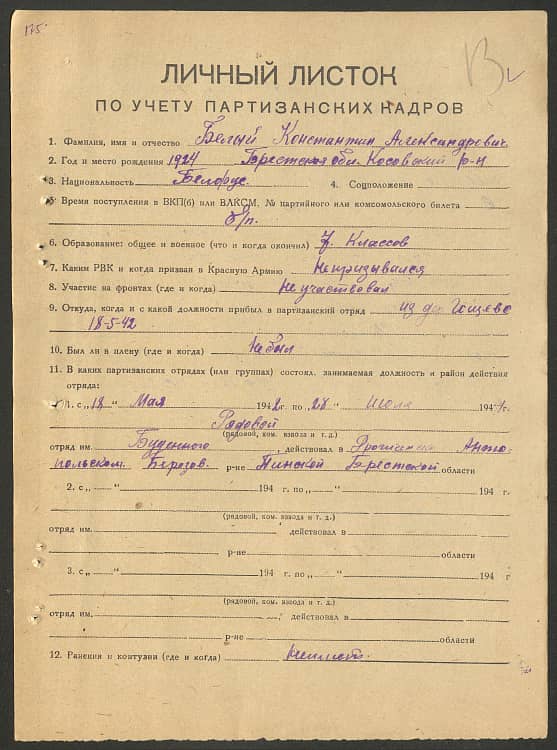 175.
ЛИЧНЫЙ ЛИСТОК
ПО УЧЕТУ ПАРТИЗАНСКИХ КАДРОВ
1. Фамилия, имя и отчество Белый Константин Александрович.
2. Год и место рождения 1924 Брестская обл. Косовский р-н
3. Национальность Белорус. 4. Соцположение
5. Время поступления в ВКП(б) или ВЛКСМ, № партийного или комсомольского билета
б/п.
6. Образование: общее и военное (что и когда окончил) 7. Классов
7. Каким РВК и когда призван в Красную Армию Непризывался
8. Участие на фронтах (где и когда) Не участвовал
9. Откуда, когда и с какой должности прибыл в партизанский отряд из д. Гощево
18-5-42
10. Был ли в плену (где и когда) Не был
11. В каких партизанских отрядах (или группах) состоял, занимаемая должность и район действия
отряда:
1. с „18“ Мая 1942 г. по „28“ Июля 1944 г.
Рядовой
(рядовой, ком. взвода и т. д.)
отряд им. Буденного, действовал в Дрогичин Анто
польском. Березов. р-не Пинской Брестской области
2. с „ “ 194 г. по „ “ 194 г.
(рядовой, ком. взвода и т. д.)
отряд им. действовал в
р-не области
3. с „ “ 194 г. по „ “ 194 г
(рядовой, ком. взвода и т. д.)
отряд им. , действовал в
р-не области
12. Ранения и контузии (где и когда)